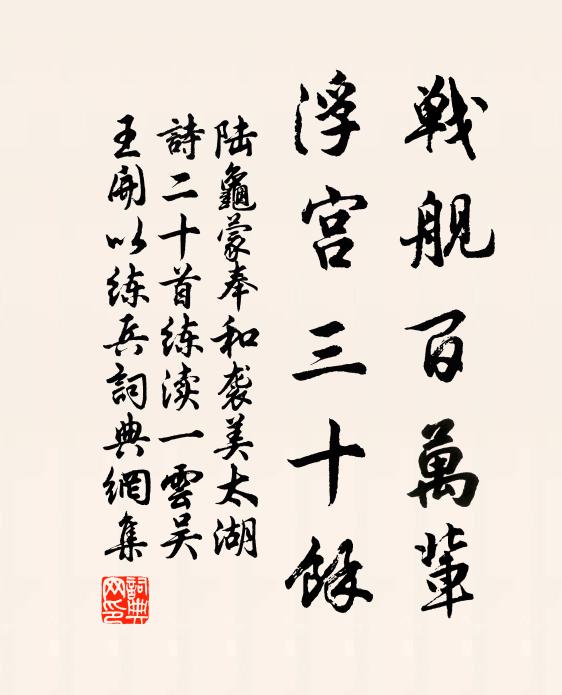 戦舰百萬輩
浮宫三十餘
陆龜蒙奉和袭美太湖
詩二十首练渎一雲吴
王開以练兵詞典網集
詞典
网印